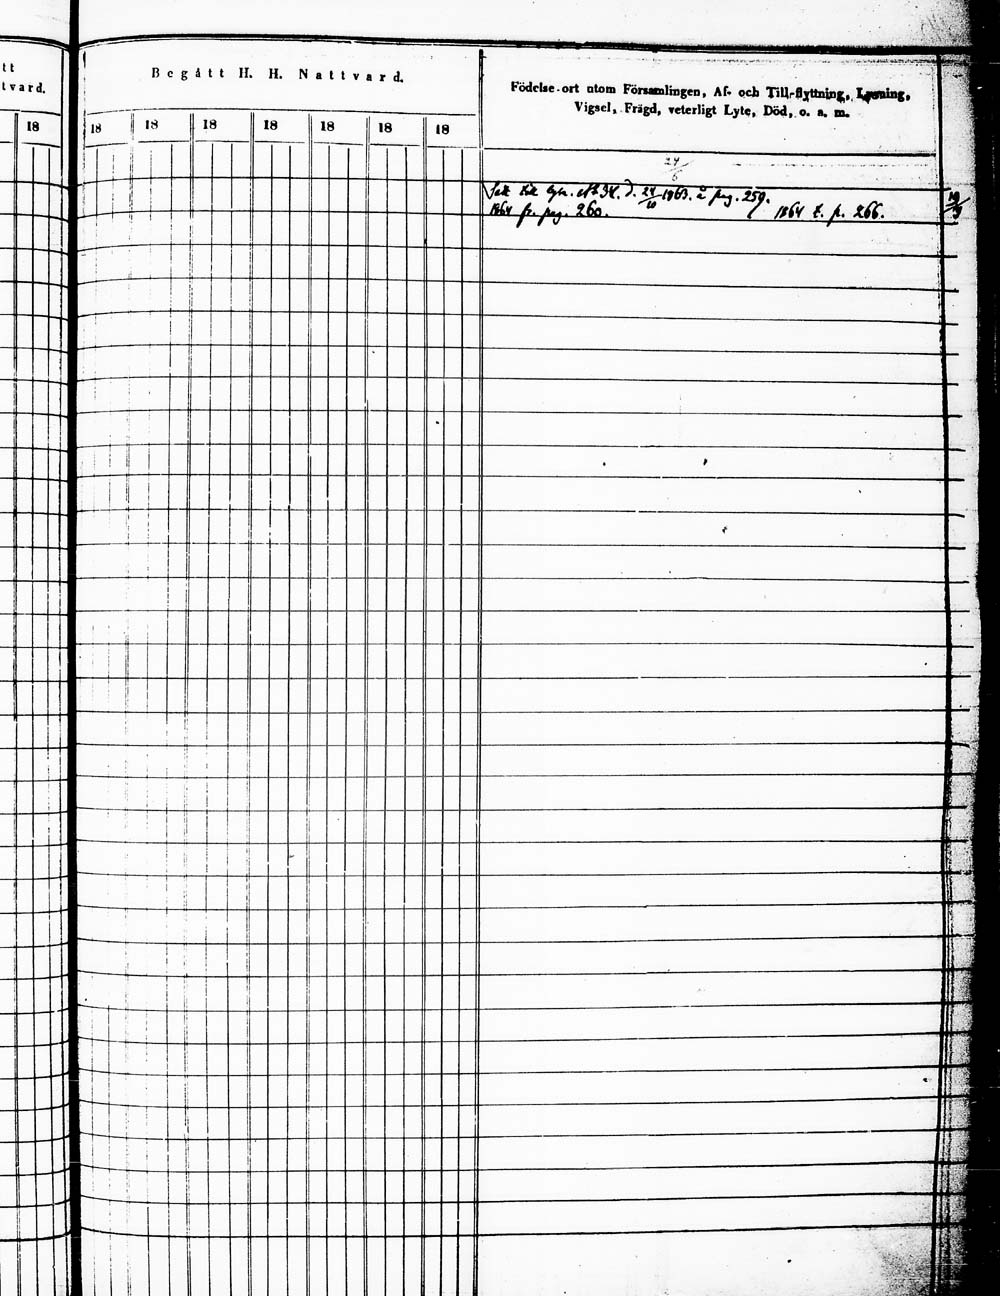 tt
tvard.
18
Begått H. H. Nattvard.
18 18 18 18 18 18 18
Födelse-ort utom Församlingen, Af- och Till-flyttning, Lysning,
Vigsel, Frägd, veterligt Lyte, Död, o. s. m.
24/6
24/10 1863. å pag. 259.
1864 fr. pag. 260. 1864 t. p. 266.